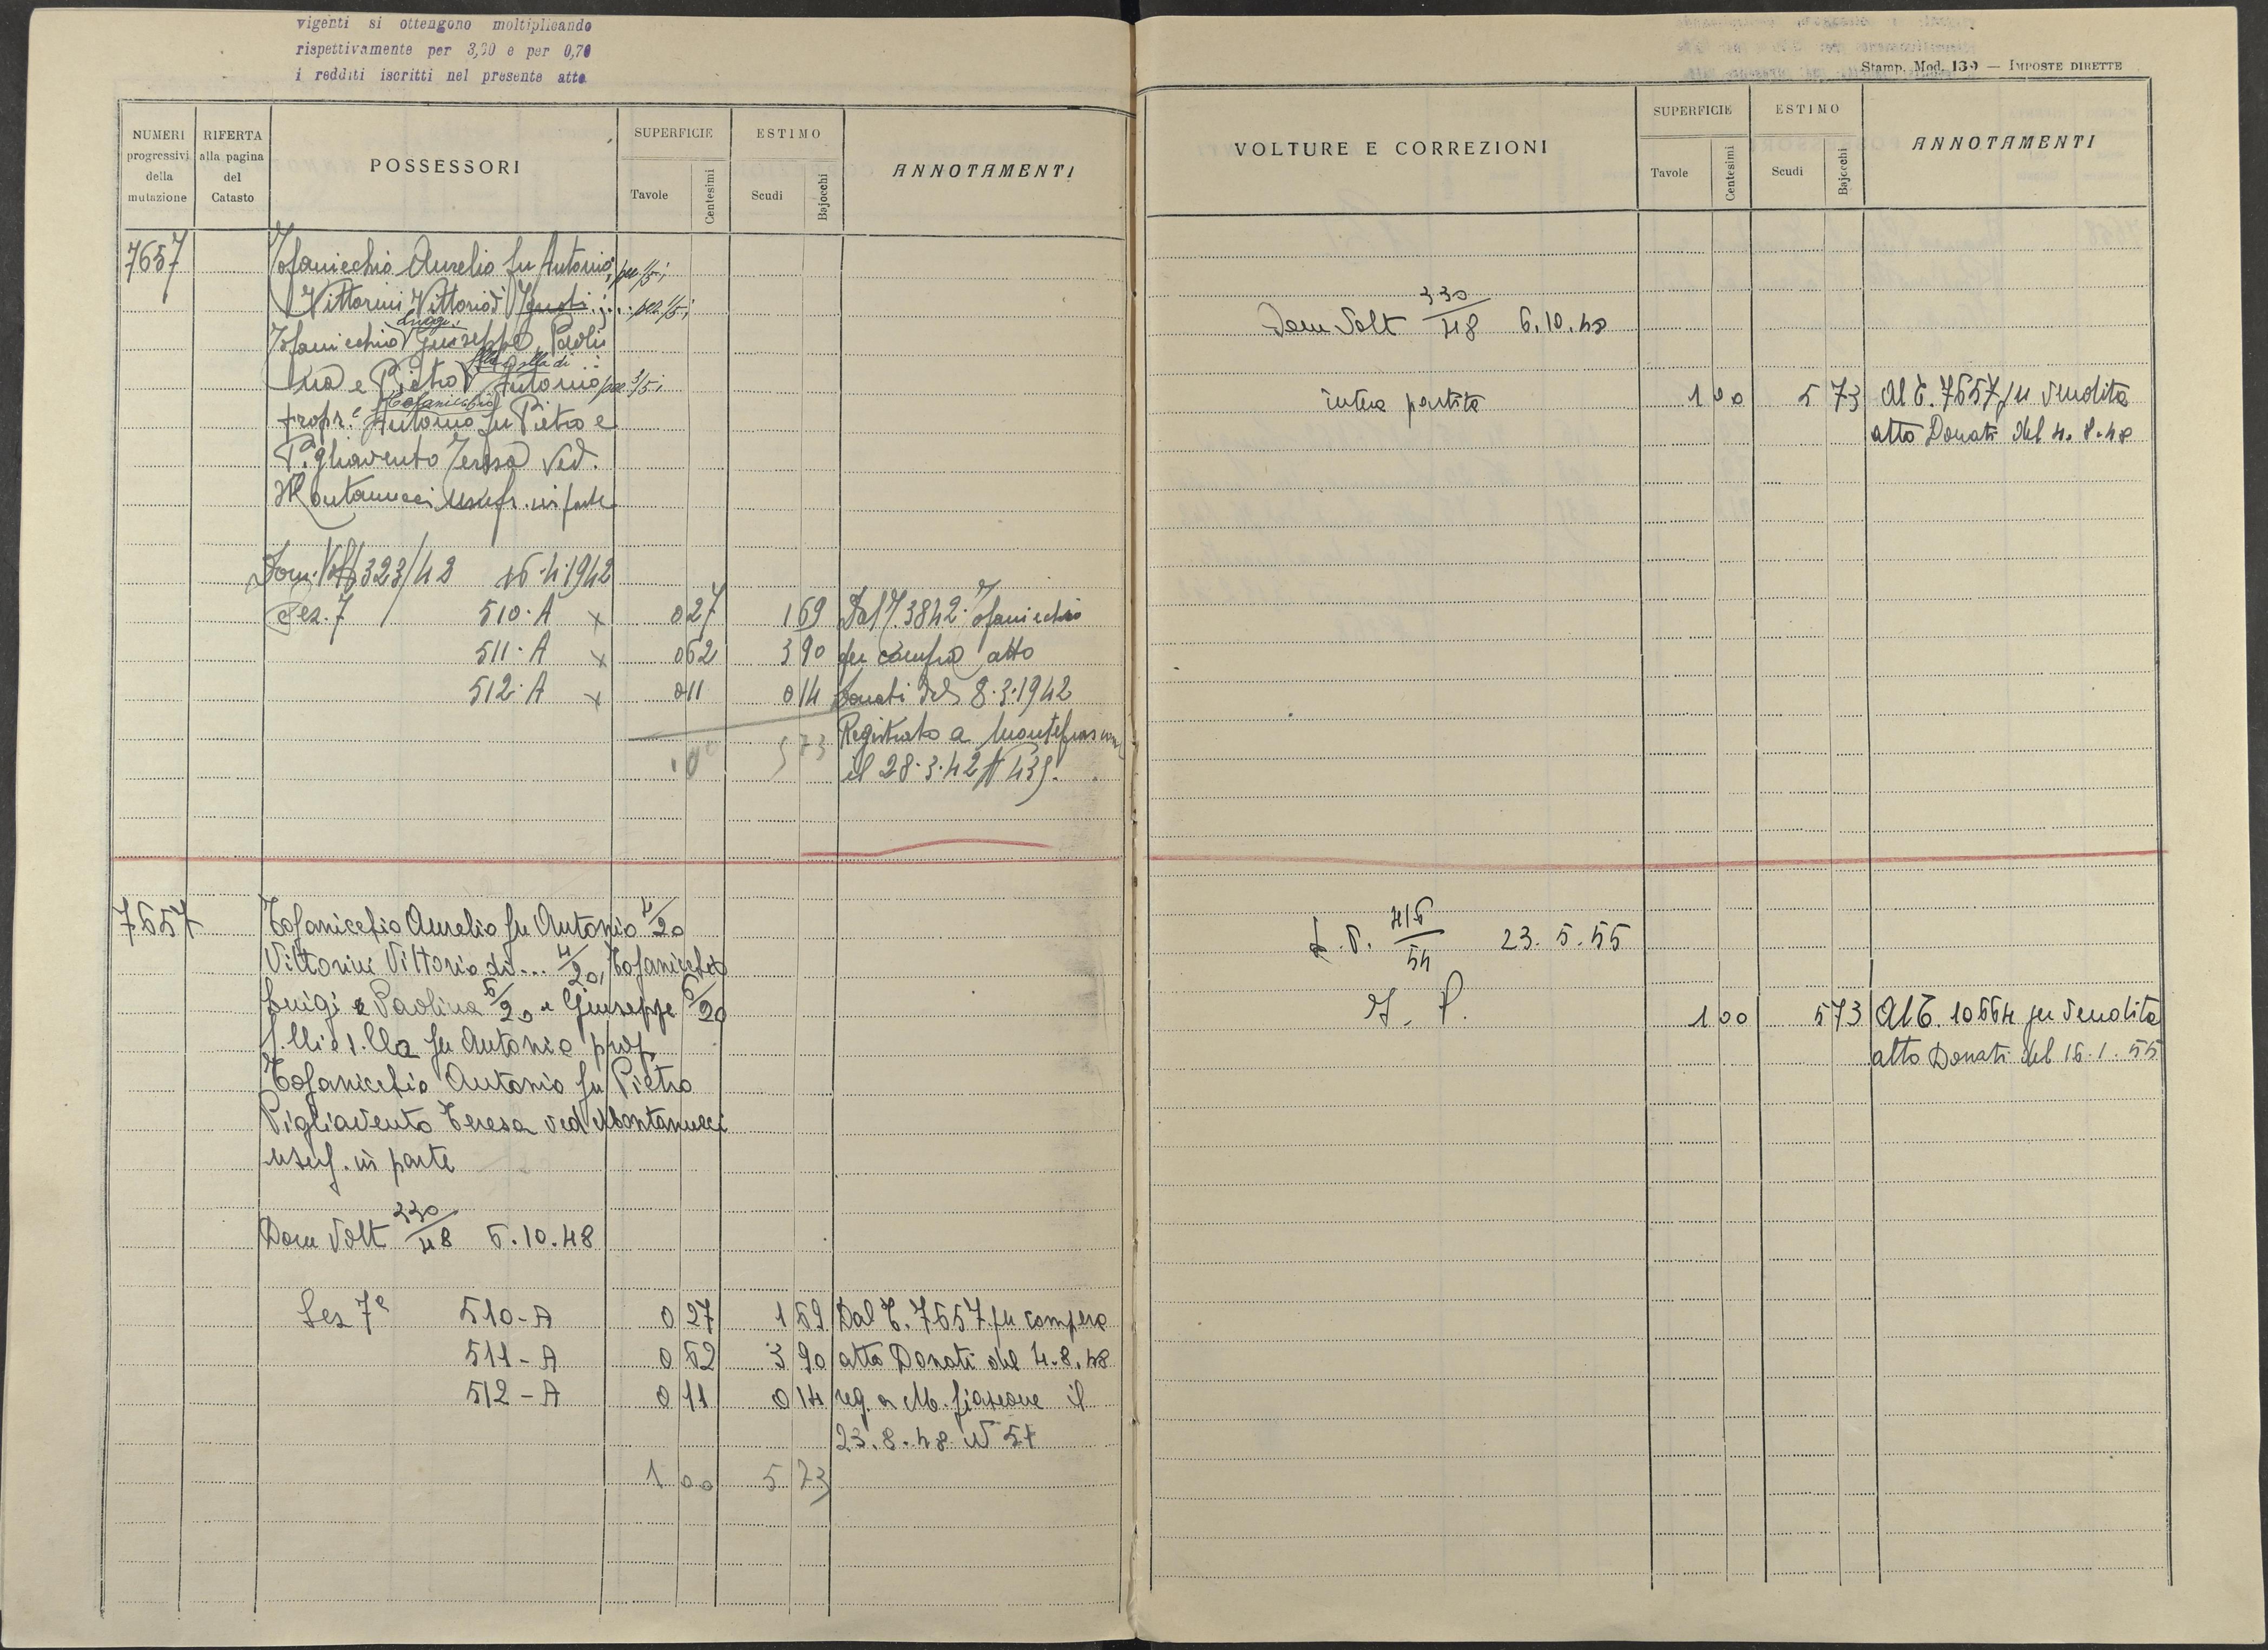 vigenti si ottengono moltiplicando
rispettivamente per 3,30 e per 0,70
i redditi iscritti nel presente atto
NUMERI progressivi della mutazione
RIFERTA alla pagina del Catasto
POSSESSORI
SUPERFICIE
Tavole
Centesimi
ESTIMO
Scudi
Bajocchi
ANNOTAMENTI
7657 Tofanicchio Aurelio fu Antonio, per 1/5;
Vittorini Vittorio di Ignoti; per 1/5;
Luigi,
Tofanicchio Giuseppe, Paoli
f.lli e s.lla di
na e Pietro Antonio per 3/5;
Tofanicchio
propr. e Antonio fu Pietro e
Pigliavento Teresa Ved.
Montanucci usufr. in parte
Dom. Volt 323/42 16.4.1942
Sez. 7 510. A x 0 27 1 69 Dal T. 3842 Tofanicchio
511. A x 0 62 3 90 per compra atto
512. A x 0 11 0 14 Donati del 8.3.1942
Registrato a Montefiascone
1 00 5 73
il 28.3.42 N 439.
7657 Tofanicchio Aurelio fu Antonio 4/20
Vittorini Vittorio di... 4/20, Tofanicchio
Luigi e Paolina 6/20 e Giuseppe 6/20
f.lli e s.lla fu Antonio prop.
Tofanicchio Antonio fu Pietro
Pigliavento Teresa ved Montanucci
usuf. in parte
Dom Volt 330/48 6.10.48
Sez 7ª 510-A 0 27 1 69 Dal T. 7657 per compera
511-A 0 62 3 90 atto Donati del 4.8.48
512-A 0 11 0 14 reg. a M. fiascone il
23.8.48 N 57
1 00 5 73
Stamp. Mod. 139 — IMPOSTE DIRETTE
VOLTURE E CORREZIONI
SUPERFICIE
Tavole
Centesimi
ESTIMO
Scudi
Bajocchi
ANNOTAMENTI
Dom Volt 330/48 6.10.48
intera partita 1 00 5 73 Al T. 7657 per vendita
atto Donati del 4.8.48
416/54 23.5.55
I. P. 1 00 5 73 Al T. 10664 per vendita
atto Donati del 16.1.55